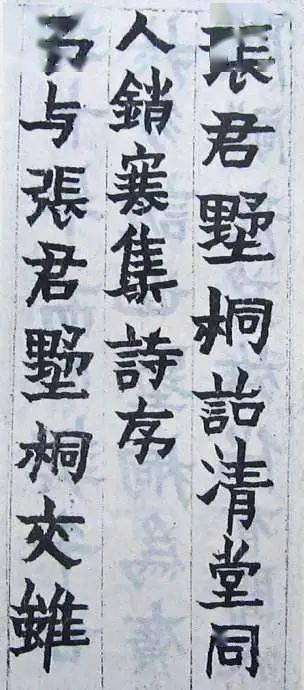 張君墅桐詒清堂同
人銷寒集詩序
予与張君墅桐交雖